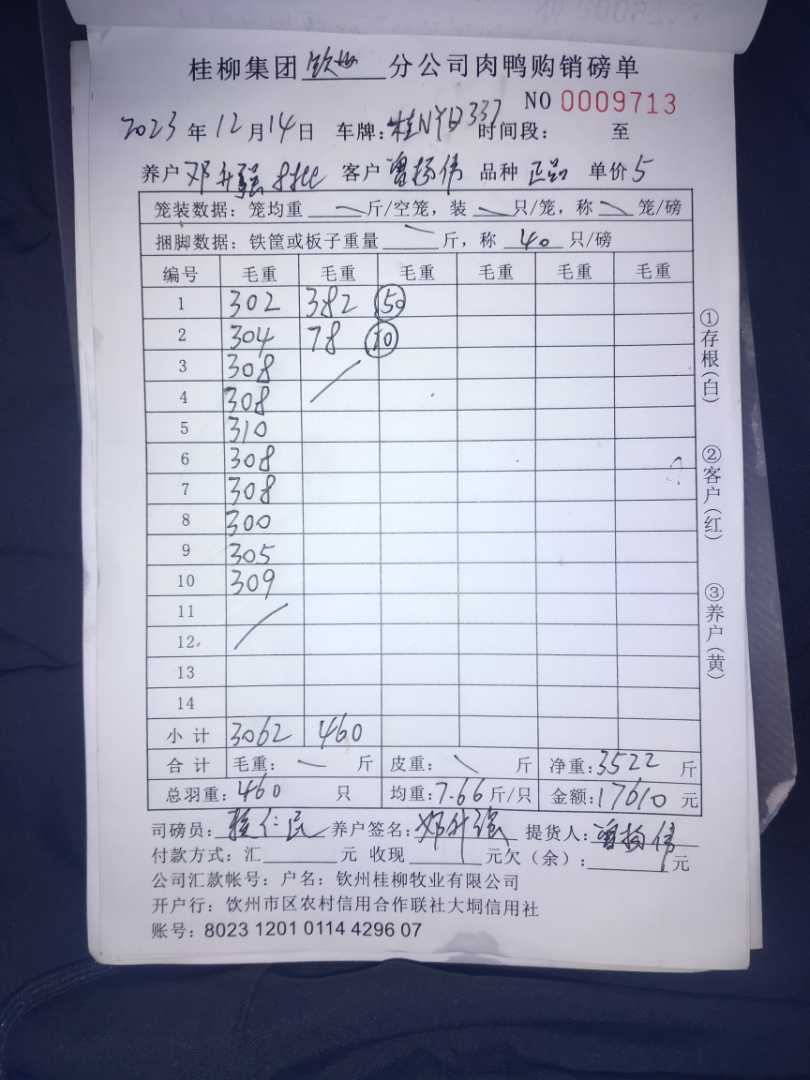 桂柳集团 钦州 分公司肉鸭购销磅单
NO 0009713
2023年12月14日 车牌：桂N 337 时间段： 至
养户 邓升强 客户 曾扬伟 品种 正品 单价 5
笼装数据：笼均重 斤/空笼，装 只/笼，称 笼/磅
捆脚数据：铁筐或板子重量 斤，称 40 只/磅
编号 毛重 毛重 毛重 毛重 毛重 毛重
1 302 382 50
2 304 78 10
3 308
4 308
5 310
6 308
7 308
8 300
9 305
10 309
11
12
13
14
小计 3062 460
合计 毛重： 斤 皮重： 斤 净重：3522 斤
总羽重：460 只 均重：7.66 斤/只 金额：17610 元
司磅员： 仁民 养户签名：邓升强 提货人：曾扬伟
付款方式：汇 元 收现 元欠（余）： 元
公司汇款帐号：户名：钦州桂柳牧业有限公司
开户行：饮州市区农村信用合作联社大垌信用社
账号：8023 1201 0114 4296 07
①存根（白）
②客户（红）
③养户（黄）